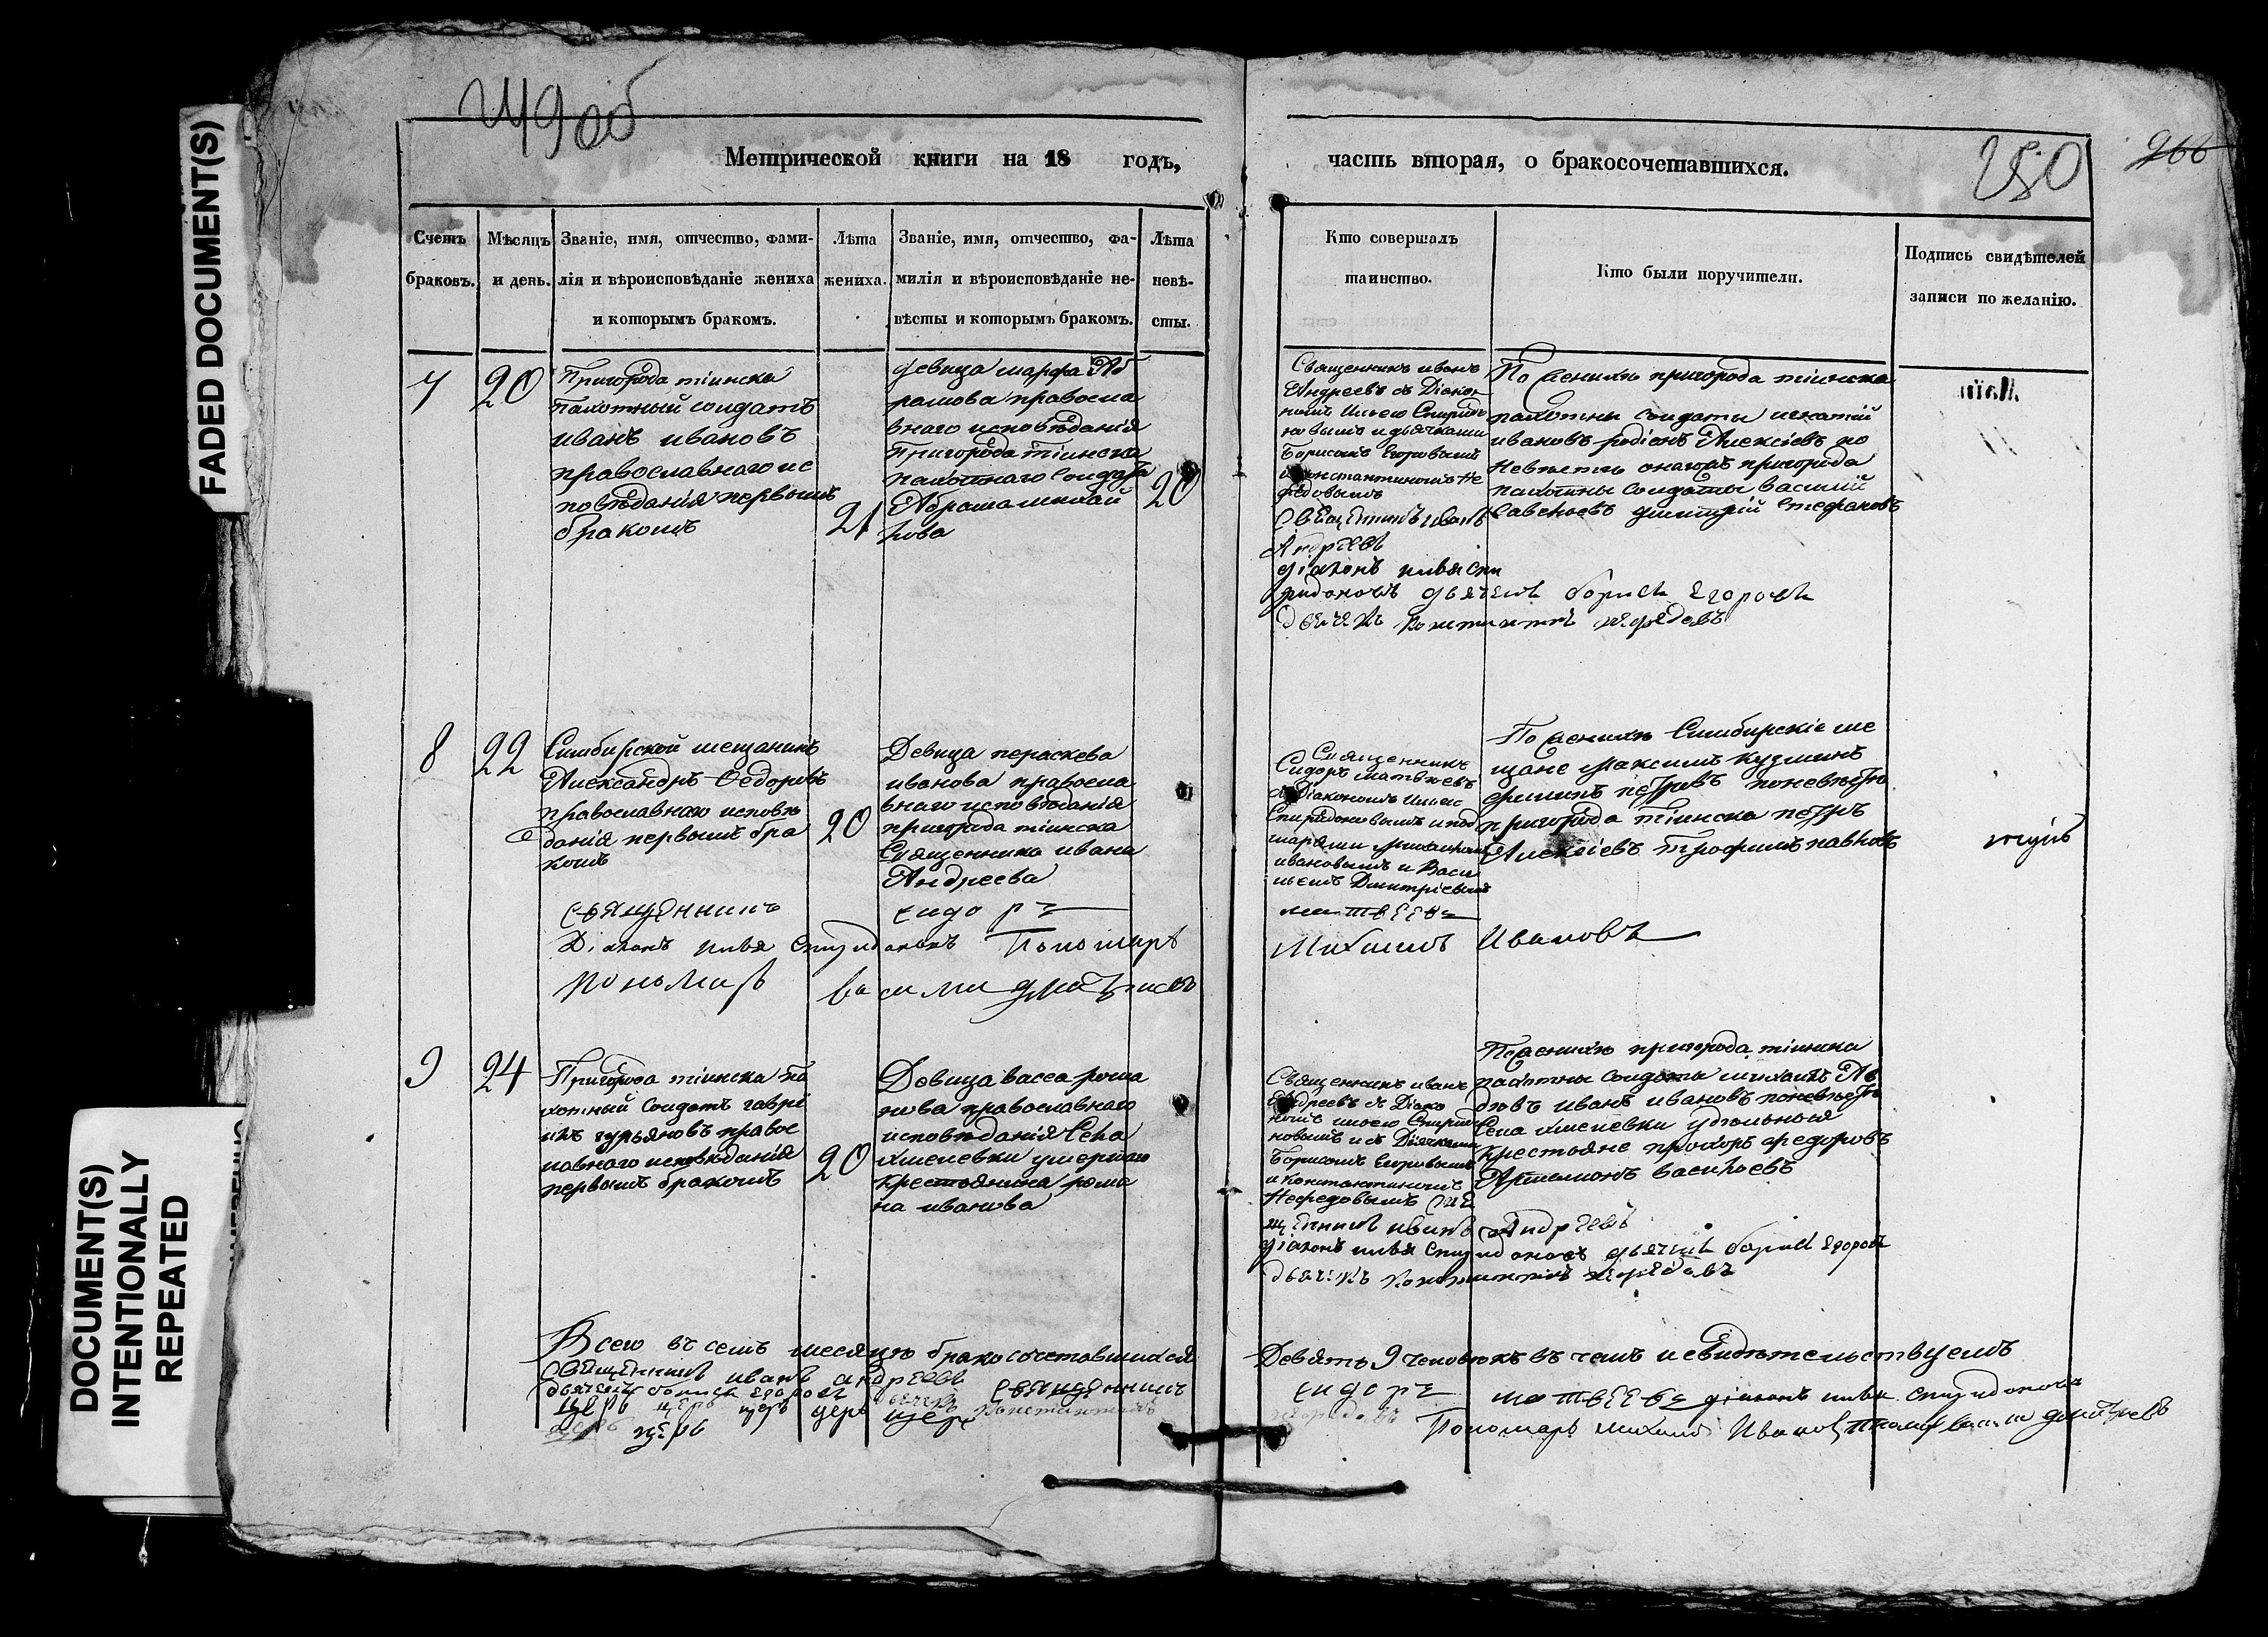 FADED DOCUMENT(S)
DOCUMENT(S)
INTENTIONALLY
REPEATED
250
266
Метрической книги на 18 годъ,
часть вторая, о бракосочетавшихся.
Счетъ
браковъ.
Мѣсяцъ
и день.
Званіе, имя, отчество, фами-
лія и вѣроисповѣданіе жениха
и которымъ бракомъ.
Лѣта
жениха.
Званіе, имя, отчество, фа-
милія и вѣроисповѣданіе не-
вѣсты и которымъ бракомъ.
Лѣта
невѣ-
сты.
Кто совершалъ
таинство.
Кто были поручители.
Подпись свидѣтелей
записи по желанію.
7
20
Пригорода тіинска
пахотный солдатъ
иванъ ивановъ
православнаго ис
повѣданія первымъ
бракомъ
21
девица марфа Аб
рамова правосла
внаго исповѣданія
Пригорода тіинска
пахотнаго солдата
Абрама михай
лова
20
Священникъ иванъ
Андреевъ съ Діако
номъ Ильею Спиридо
новымъ и дьячками
Борисомъ Егоровымъ
и константиномъ Не
федовымъ
Священникъ иванъ
Андреевъ
діаконъ илья спи
ридоновъ дьячекъ борисъ егоровъ
дьячекъ константинъ нефедовъ
По женихѣ пригорода тіинска
пахотны солдаты игнатій
ивановъ родіонъ Алексіевъ по
невѣсты онагожъ пригорода
пахотны солдаты василій
Савельевъ дмитрій Стефановъ
8
22
Симбирской мещанинъ
Александръ Федоровъ
православнаго исповѣ
данія первымъ бра
комъ
20
Девица параскева
иванова правосла
внаго исповѣданія
пригорода тіинска
Священника ивана
Андреева
Священникъ
Сидоръ матвеевъ
съ Діакономъ Ильею
Спиридоновымъ и пономарями Михаиломъ
ивановымъ и Васи
льемъ Дмитріевымъ
По женихѣ Симбирскіе ме
щане Максимъ кузминъ
филипъ петровъ поневѣстѣ
пригорода тіинска петръ
Алексіевъ трофимъ павловъ
священникъ сидоръ матвеевъ
Діаконъ илья спиридоновъ Пономарь Михаилъ Ивановъ
Пономарь василий дмитриевъ
9
24
Пригорода тіинска па
хотный солдатъ гаврі
илъ гурьяновъ правос
лавнаго исповѣданія
первымъ бракомъ
20
Девица васса рома
нова православнаго
исповѣданія Села
хмелевки умершаго
крестьянина рома
на иванова
Священникъ иванъ
Андреевъ съ Діако
номъ ильею Спиридо
новымъ и съ Дьячками
Борисомъ Егоровымъ
и Константиномъ
Нефедовымъ свя
щенникъ иванъ Андреевъ
діаконъ илья спиридоновъ дьячекъ борисъ егоровъ
дьячекъ константинъ нефедовъ
По женихѣ пригорода тіинска
пахотны солдаты михаилъ Ав
дѣевъ иванъ ивановъ поневѣстѣ
Села хмелевки удѣльныя
крестьяне прохоръ федоровъ
Артамонъ васильевъ
Всего въ семъ месяцѣ бракосочетавшихся Девять 9 человѣкъ въ чемъ и свидѣтельствуемъ
священникъ иванъ андреевъ священникъ сидоръ матвеевъ діаконъ илья спиридоновъ
дьячекъ борисъ егоровъ дьячекъ константинъ нефедовъ Пономарь михаилъ Ивановъ пономарь василий дмитриевъ